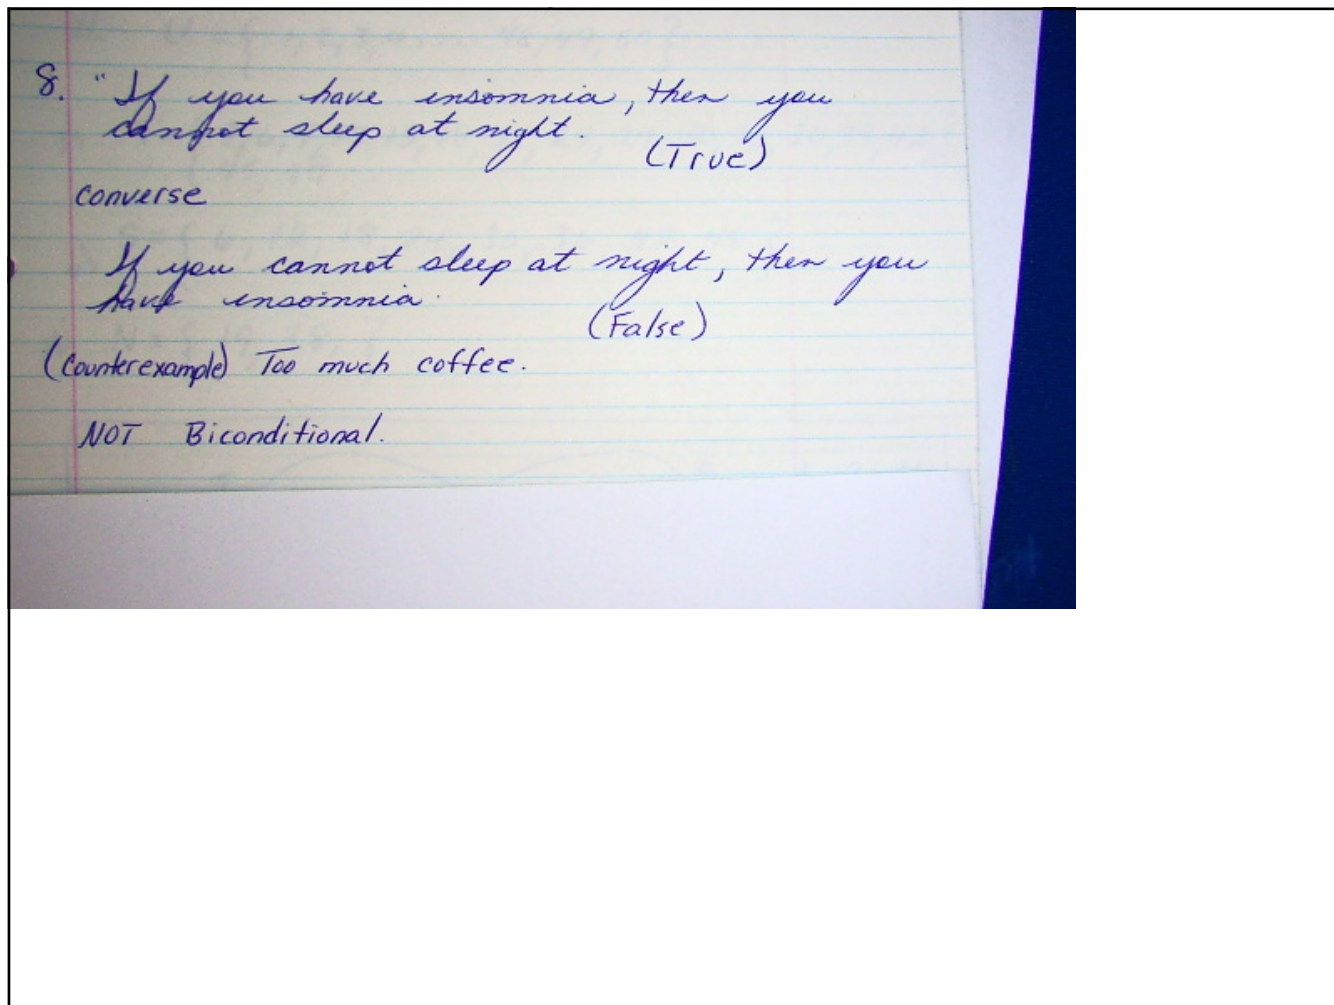 8. "If you have insomnia, then you
cannot sleep at night.
(True)
converse
If you cannot sleep at night, then you
have insomnia.
(False)
(Counterexample) Too much coffee.
NOT Biconditional.